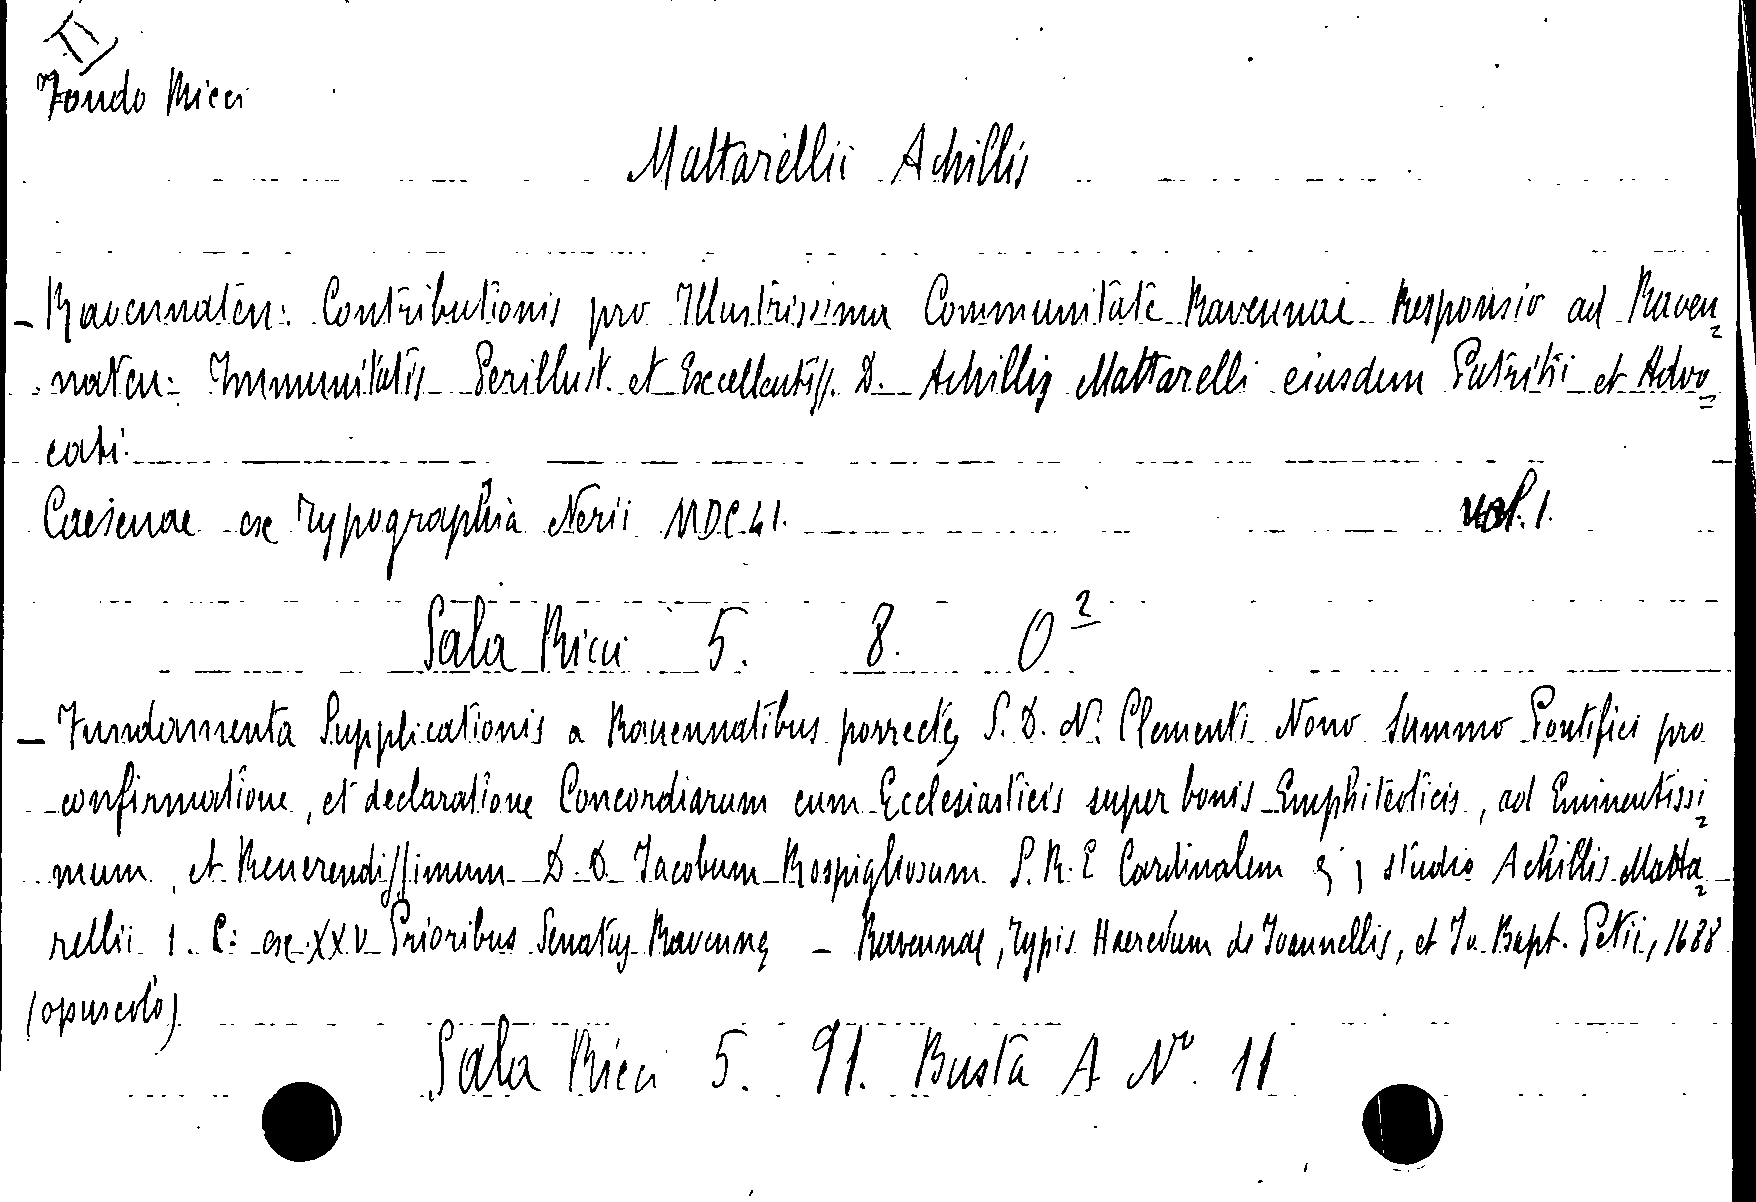 II
Fondo Ricci
Mattarellii Achillis
- Ravennaten: Contributionis pro Illustrissima Communitate Ravennae Responsio ad Raven=
naten: Immunitatis Perillust. et Excellentiss. D. Achillis Mattarelli eiusdem Patritii et Advo=
cati.
Caesenae ex Typographia Nerii MDC41. vol. 1.
Sala Ricci 5. 8. O²
- Fundamenta Supplicationis a Rauennatibus porrectę S. D. N. Clementi Nono Summo Pontifici pro
confirmatione, et declaratione Concordiarum cum Ecclesiasticis super bonis Emphiteoticis, ad Eminentissi=
mum, et Reuerendissimum D. D. Jacobum Rospigliosum S. R. E Cardinalem studio Achillis Matta=
rellii I. C: ex XXV Prioribus Senatus Ravennę - Ravennae, Typis Haeredum de Joannellis, et Jo. Bapt. Petii, 1688
(opuscolo)
Sala Ricci 5. 91. Busta A N° 11